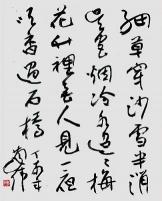 細草穿沙雪半消
吳宮烟冷水迢迢梅
花竹裡無人見一夜
吹香過石橋